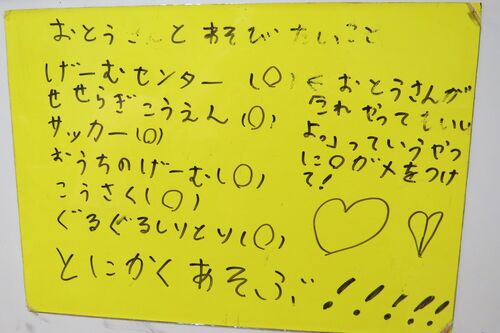 おとうさんとあそびたいこと
げーむセンター(○)
せせらぎこうえん(○)
サッカー(○)
おうちのげーむ(○)
こうさく(○)
ぐるぐるしりとり(○)
とにかくあそぶ!!!!!!
←おとうさんが
これやってもいい
よっ」っていうやつ
に○がメをつけ
て!